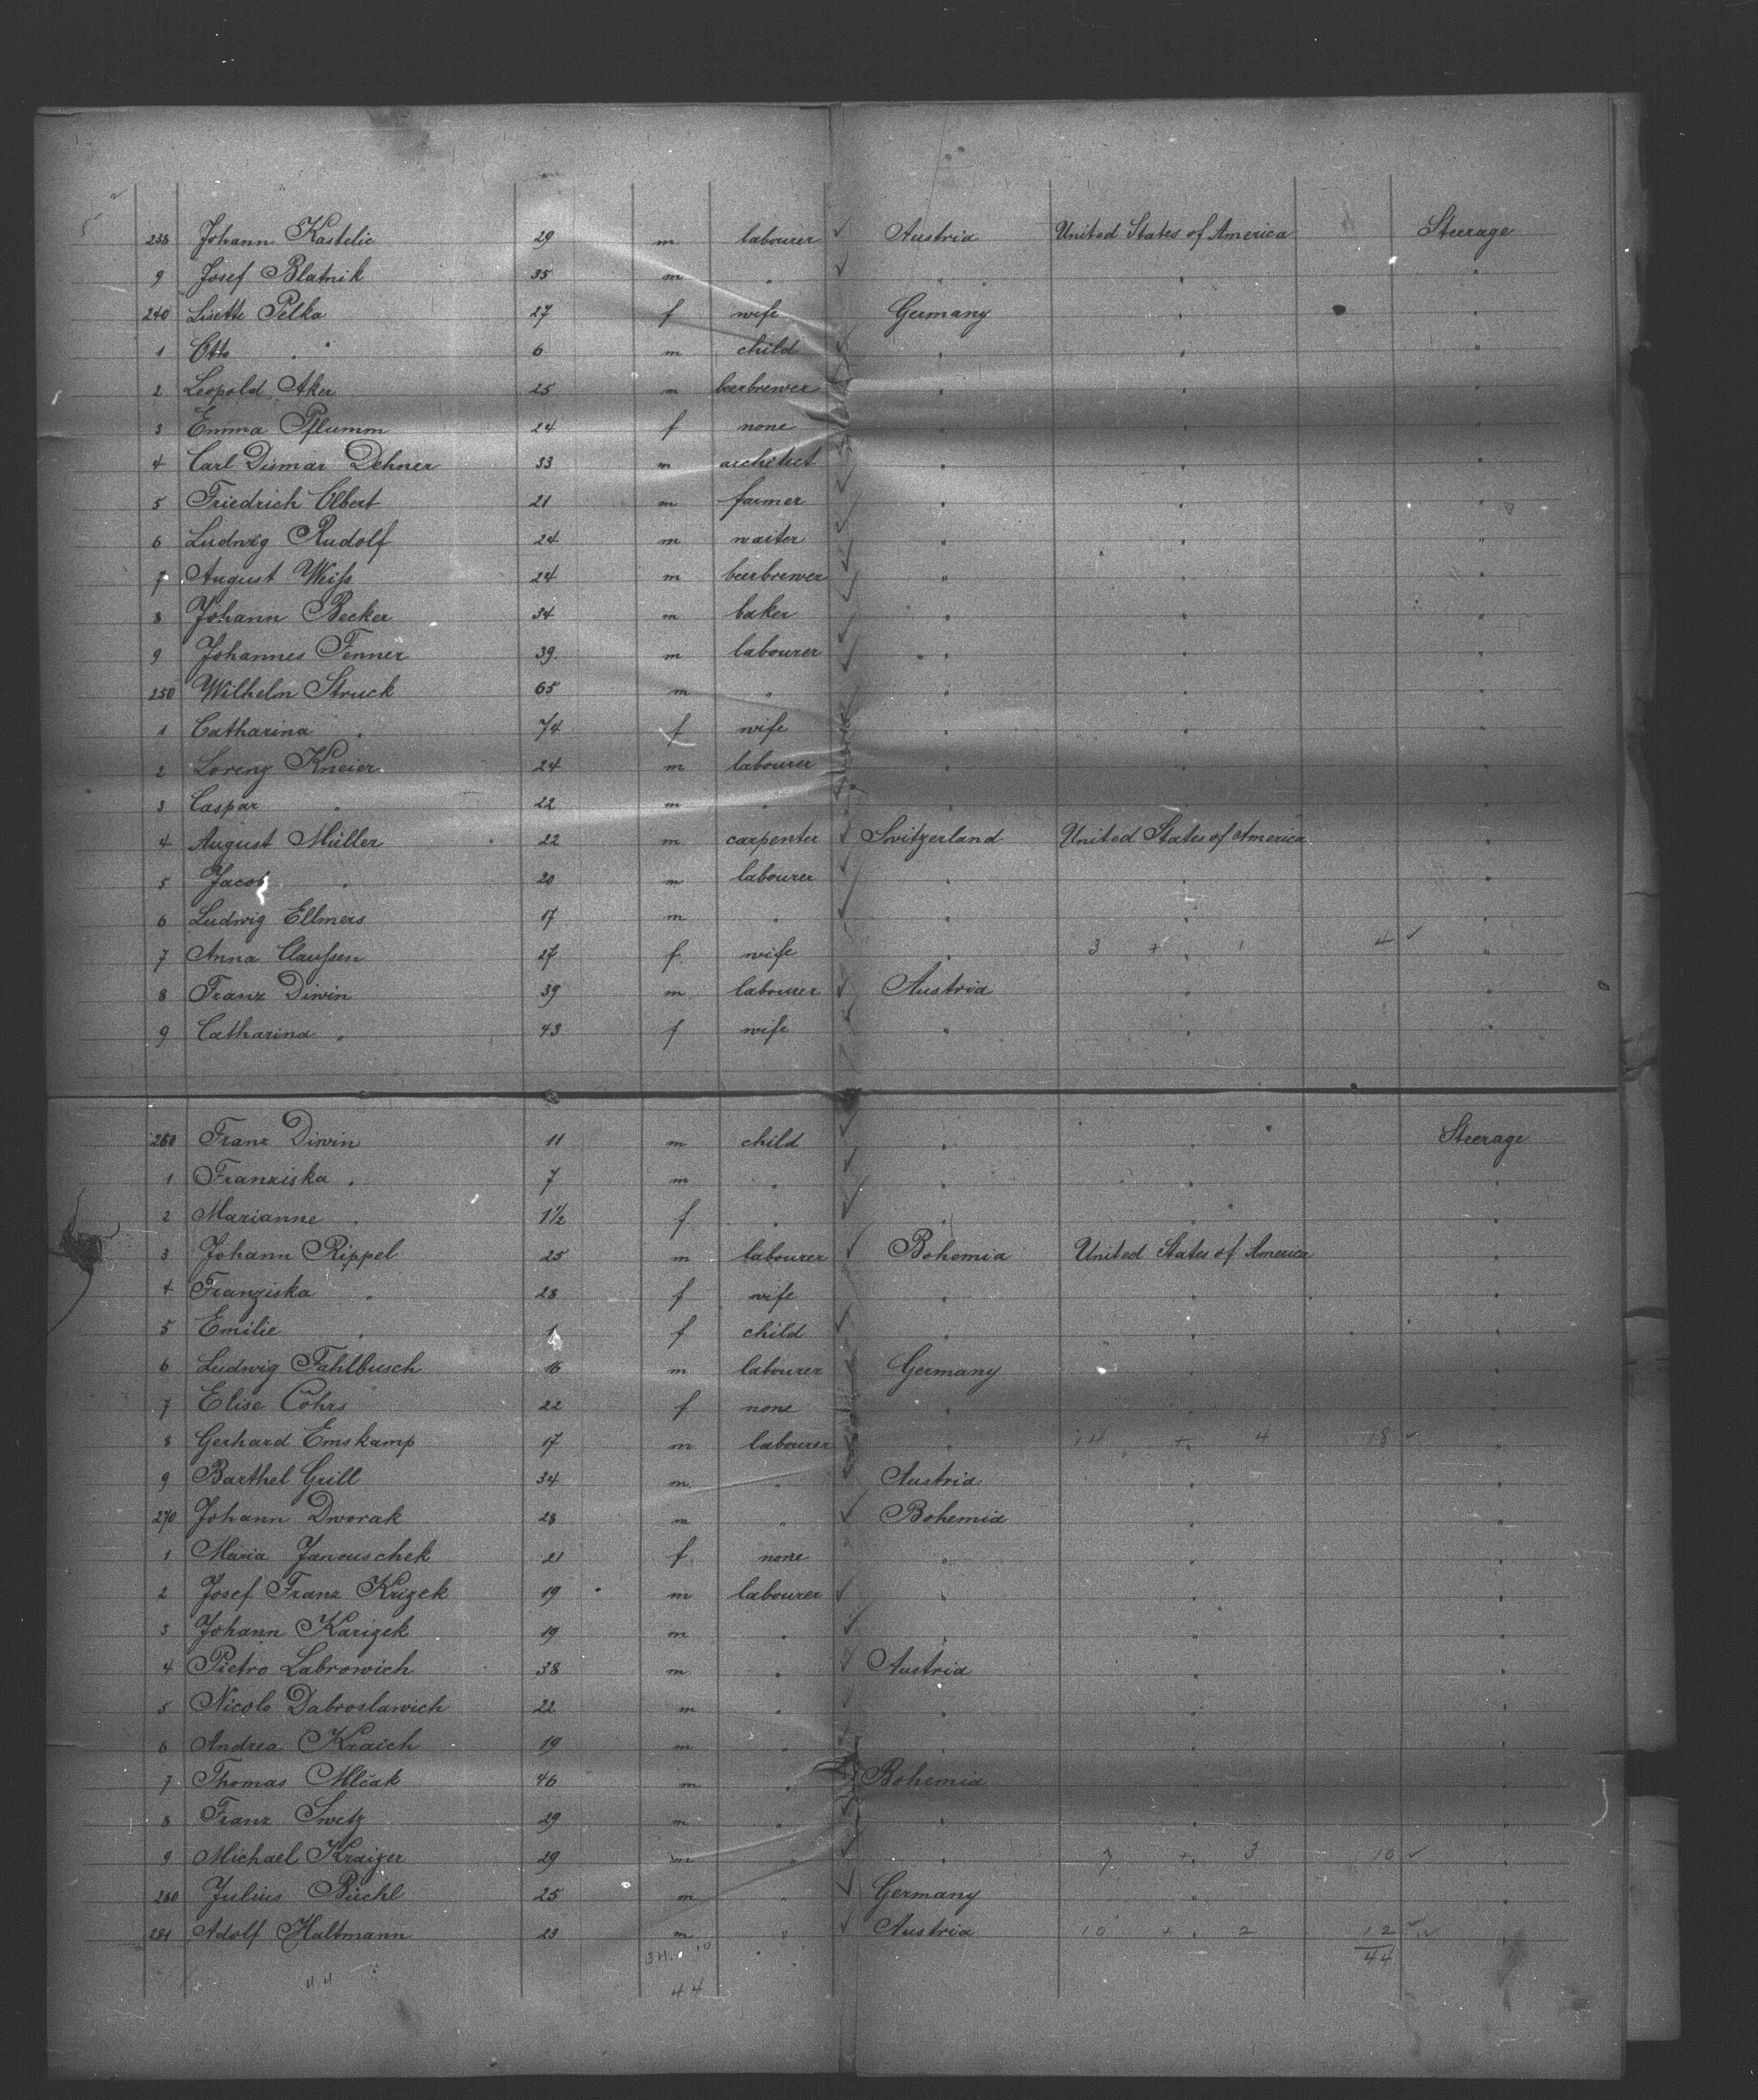 238 Johann Kastelic 29 m labourer Austria United States of America Steerage
9 Josef Blatnik 35 m " " " "
240 Lisette Pelka 27 f wife Germany " "
1 Otto " 6 m child " " "
2 Leopold Aker 25 m beerbrewer " " "
3 Emma Pflumm 24 f none " " "
4 Carl Dismar Dehner 33 m architect " " "
5 Friedrich Olbert 21 m farmer " " "
6 Ludwig Rudolf 24 m waiter " " "
7 August Weiß 24 m beerbrewer " " "
8 Johann Becker 34 m baker " " "
9 Johannes Fenner 39 m labourer " " "
250 Wilhelm Struck 65 m " " " "
1 Catharina " 74 f wife " " "
2 Lorenz Kneier 24 m labourer " " "
3 Caspar " 22 m " " " "
4 August Müller 22 m carpenter Switzerland United States of America "
5 Jacob " 20 m labourer " " "
6 Ludwig Ellmers 17 m " " " "
7 Anna Claußen 27 f wife " 3 + 1 4 "
8 Franz Diwin 39 m labourer Austria " "
9 Catharina " 43 f wife " " "
260 Franz Diwin 11 m child " " Steerage
1 Franziska " 7 m " " " "
2 Marianne " 1½ f " " " "
3 Johann Rippel 25 m labourer Bohemia United States of America "
4 Franziska " 28 f wife " " "
5 Emilie " 1 f child " " "
6 Ludwig Fahlbusch 16 m labourer Germany " "
7 Elise Cohrs 22 f none " " "
8 Gerhard Emskamp 17 m labourer " 14 + 4 18 "
9 Barthel Grill 34 m " Austria " "
270 Johann Dworak 28 m " Bohemia " "
1 Maria Janouschek 21 f none " " "
2 Josef Franz Krizek 19 m labourer " " "
3 Johann Karizek 19 m " " " "
4 Pietro Labrowich 38 m " Austria " "
5 Nicolo Dabroslawich 22 m " " " "
6 Andrea Kraich 19 m " " " "
7 Thomas Mlčak 46 m " Bohemia " "
8 Franz Swetz 29 m " " " "
9 Michael Kraizer 29 m " " 7 + 3 10 "
280 Julius Büchl 25 m " Germany " "
281 Adolf Haltmann 23 m " Austria 10 + 2 12 "
34 10 44
44 44